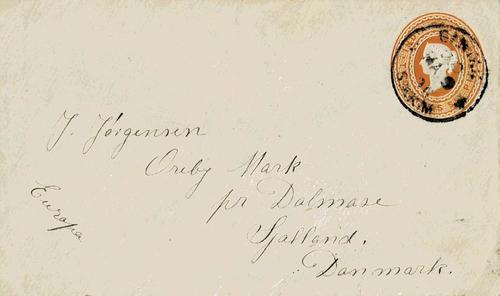 J. Jørgensen
Oreby Mark
pr Dalmase
Sjalland,
Danmark.
Europa